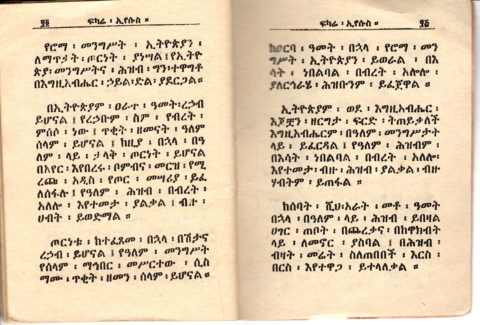 ፍካሬ ፡ ኢየሱስ ።
የሮማ ፡ መንግሥት ፡ ኢትዮጵያን ፡
ለማጥፋት ፡ ጦርነት ፡ ያነሣል ፤ የኢትዮ
ጵያ ፡ መንግሥትና ፡ ሕዝብ ፡ ግን ፡ ተዋግቶ
በእግዚአብሔር ፡ ኃይል ፡ ድል ፡ ያደርጋል ።
በኢትዮጵያም ፡ ዐራተ ፡ ዓመት ፡ ረኃብ
ይሆናል ፤ የረኃቡም ፡ ስም ፡ የብረት ፡
ምሰሶ ፡ ነው ፤ ጥቂት ፡ ዘመናት ፡ ዓለም
ሰላም ፡ ይሆናል ፤ ከዚያ ፡ በኋላ ፡ በዓ
ለም ፡ ላይ ፡ ታላቅ ፡ ጦርነት ፡ ይሆናል
በአየር ፡ እየበረሩ ፡ ቦምብና ፡ መርዝ ፡ የሚ
ረጩ ፡ አዲስ ፡ የጦር ፡ መሣሪያ ፡ ይፈ
ለሰፋሉ ፤ የዓለም ፡ ሕዝብ ፡ በብረት ፡
አሎሎ ፡ እየተመታ ፡ ያልቃል ፡ ብዙ ፡
ሀብት ፡ ይወድማል ።
ጦርነቱ ፡ ከተፈጸመ ፡ በኋላ ፡ በሽታና
ረኃብ ፡ ይሆናል ፤ የዓለም ፡ መንግሥት
የሰላም ፡ ማኅበር ፡ መሥርተው ፡ ሲስ
ማሙ ፡ ጥቂት ፡ ዘመን ፡ ሰላም ፡ ይሆናል ።
ፍካሬ ፡ ኢየሱስ ።
ከዐርባ ፡ ዓመት ፡ በኋላ ፡ የሮማ ፡ መን
ግሥት ፡ ኢትዮጵያን ፡ ይወራል ፡ በእ
ሳት ፡ ነበልባል ፡ በብረት ፡ አሎሎ ፡
ያለርኅራኄ ፡ ሕዝቡንም ፡ ይፈጀዋል ።
ኢትዮጵያም ፡ ወደ ፡ እግዚአብሔር ፡
እጆቿን ፡ ዘርግታ ፡ ፍርድ ፡ ትጠይቃለች
እግዚአብሔርም ፡ በዓለም ፡ መንግሥታት
ላይ ፡ ይፈርዳል ፤ የዓለም ፡ ሕዝብም ፡
በእሳት ፡ ነበልባል ፡ በብረት ፡ አሎሎ ፡
እየተመታ ፡ ብዙ ፡ ሕዝብ ፡ ያልቃል ፡ ብዙ
ሃብትም ፡ ይጠፋል ።
ከሰባት ፡ ሺህ ፡ አራት ፡ መቶ ፡ ዓመት
በኋላ ፡ በዓለም ፡ ላይ ፡ ሕዝብ ፡ ይበዛል
ሀገር ፡ ጠቦት ፡ በጨረቃና ፡ በከዋክብት
ላይ ፡ ለመኖር ፡ ያስባል ፤ በሕዝብ ፡
ብዛት ፡ መሬት ፡ ስለጠበበች ፡ እርስ ፡
በርስ ፡ እየተዋጋ ፡ ይተላለቃል ።